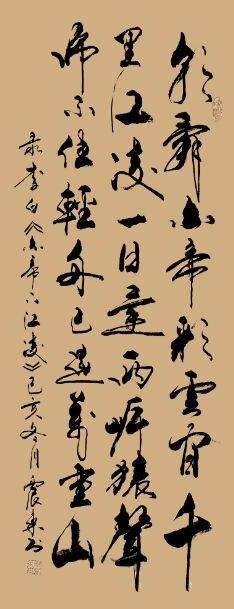 朝辭白帝彩雲間千
里江陵一日還兩岸猿聲
啼不住輕舟已過萬重山
录李白《白帝下江陵》己亥冬月震东书